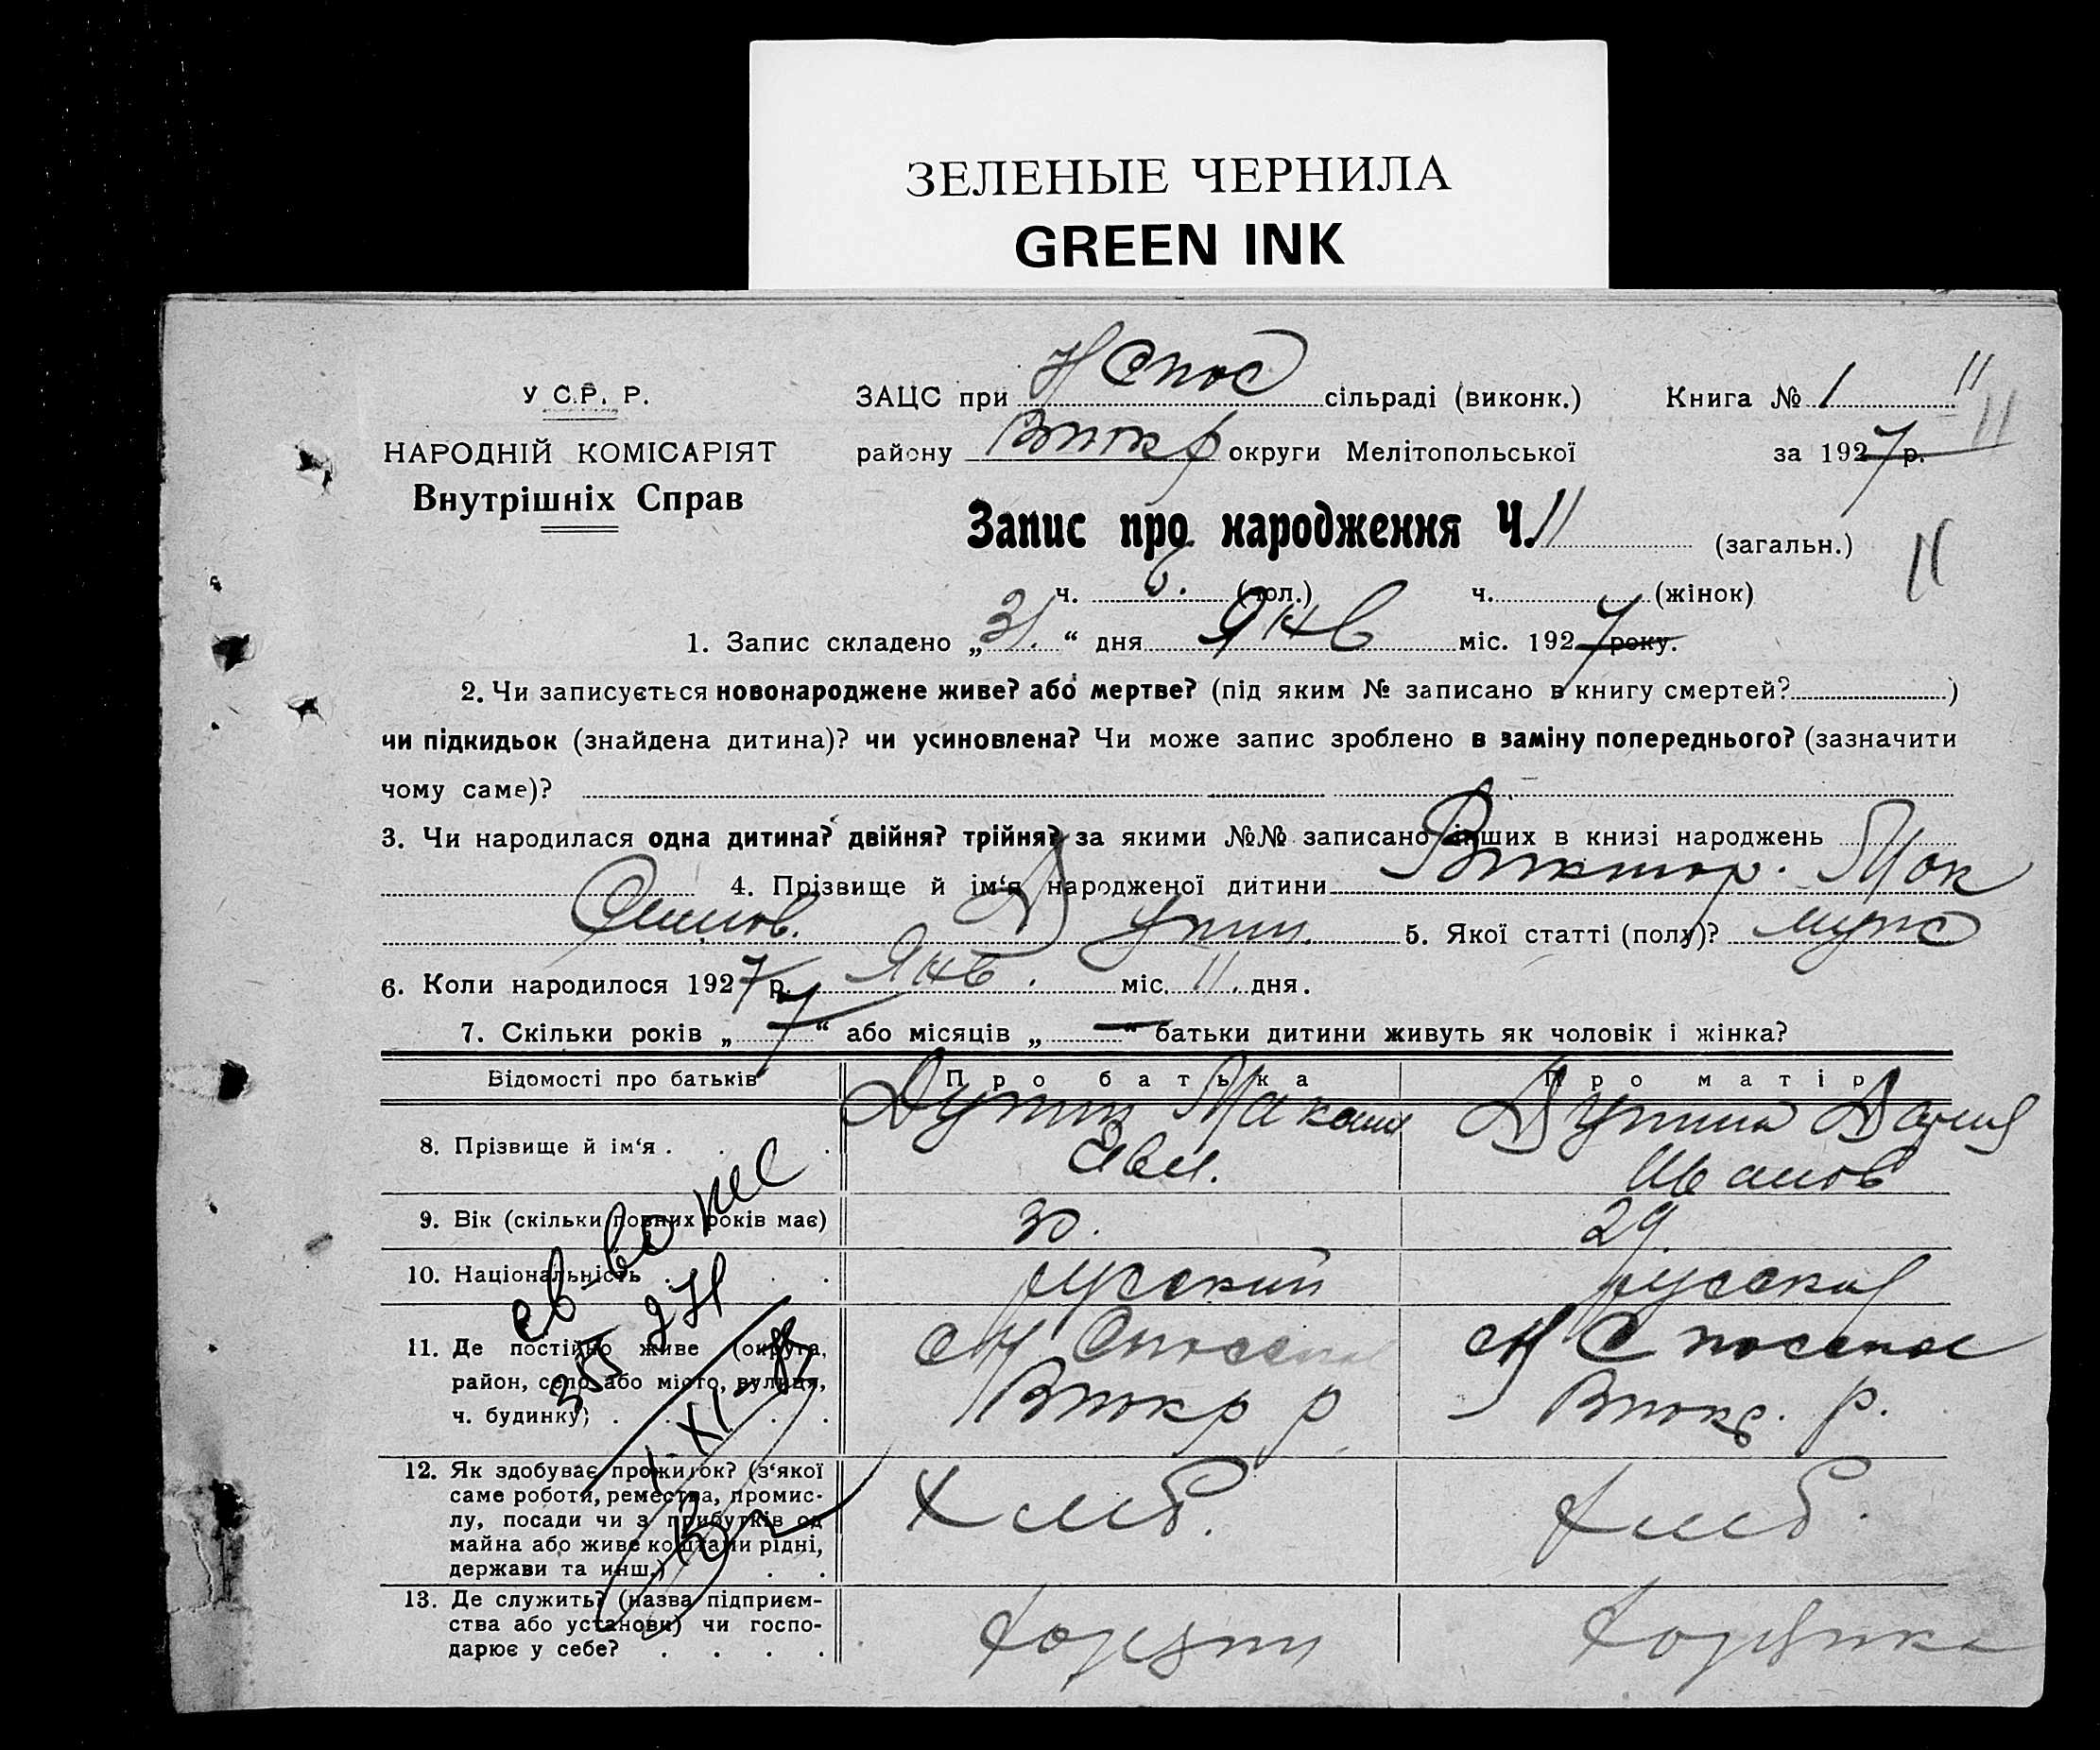 ЗЕЛЕНЫЕ ЧЕРНИЛА
GREEN INK
У С.Р. Р.
НАРОДНІЙ КОМІСАРІЯТ
Внутрішніх Справ
ЗАЦС при Н Спос сільраді (виконк.) Книга № 1 11
району Втокр округи Мелітопольської за 1927 р. 11
Запис про народження Ч. 11 (загальн.) 11
ч. 6. (чол.) ч. (жінок)
1. Запис складено „31.“ дня Янв міс. 1927 року.
2. Чи записується новонароджене живе? або мертве? (під яким № записано в книгу смертей? )
чи підкидьок (знайдена дитина)? чи усиновлена? Чи може запис зроблено в заміну попереднього? (зазначити
чому саме)?
3. Чи народилася одна дитина? двійня? трійня? за якими №№ записано інших в книзі народжень
4. Прізвище й ім‘я народженої дитини Виктор. Мак
5. Якої статті (полу)? мужс
6. Коли народилося 1927 р. Янв. міс. 11. дня.
7. Скільки років „7“ або місяців „—“ батьки дитини живуть як чоловік і жінка?
Відомості про батьків Про батька Про матір
8. Прізвище й ім‘я . . .
Иванов
9. Вік (скільки повних років має) 30. 29.
10. Національність . . . русский русская
11. Де постійно живе (округа,
район, село або місто, вулиця,
ч. будинку) . . . Втокр р Втокр. р.
12. Як здобуває прожиток? (з‘якої
саме роботи, ремества, промис-
лу, посади чи з прибутків од
майна або живе коштами рідні,
держави та инш.) . . Хлеб. Хлеб.
13. Де служить? (назва підприєм-
ства або установи) чи госпо-
дарює у себе? . . . .